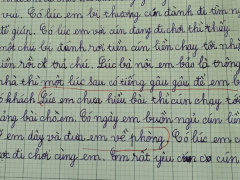 vui. Có lúc em bị thương cún đánh đi tìm n
để giúp. Có lúc em với cún đang đi chơi thì thấy
một chú bị đánh rơi tiền cún liền chạy tới nhặ
tiền rồi trả chú. Lúc bà nội em bảo là trông
nhà thì một lúc sau có tiếng gâu gâu để em b
có khách. Lúc em chưa hiểu bài thì cún chạy tới
ảng bài cho em. Có ngày em buồn ngủ cún liền
em dậy và đưa em về phòng. Có lúc em c
ợt đi chơi cùng em. Em rất yêu cún